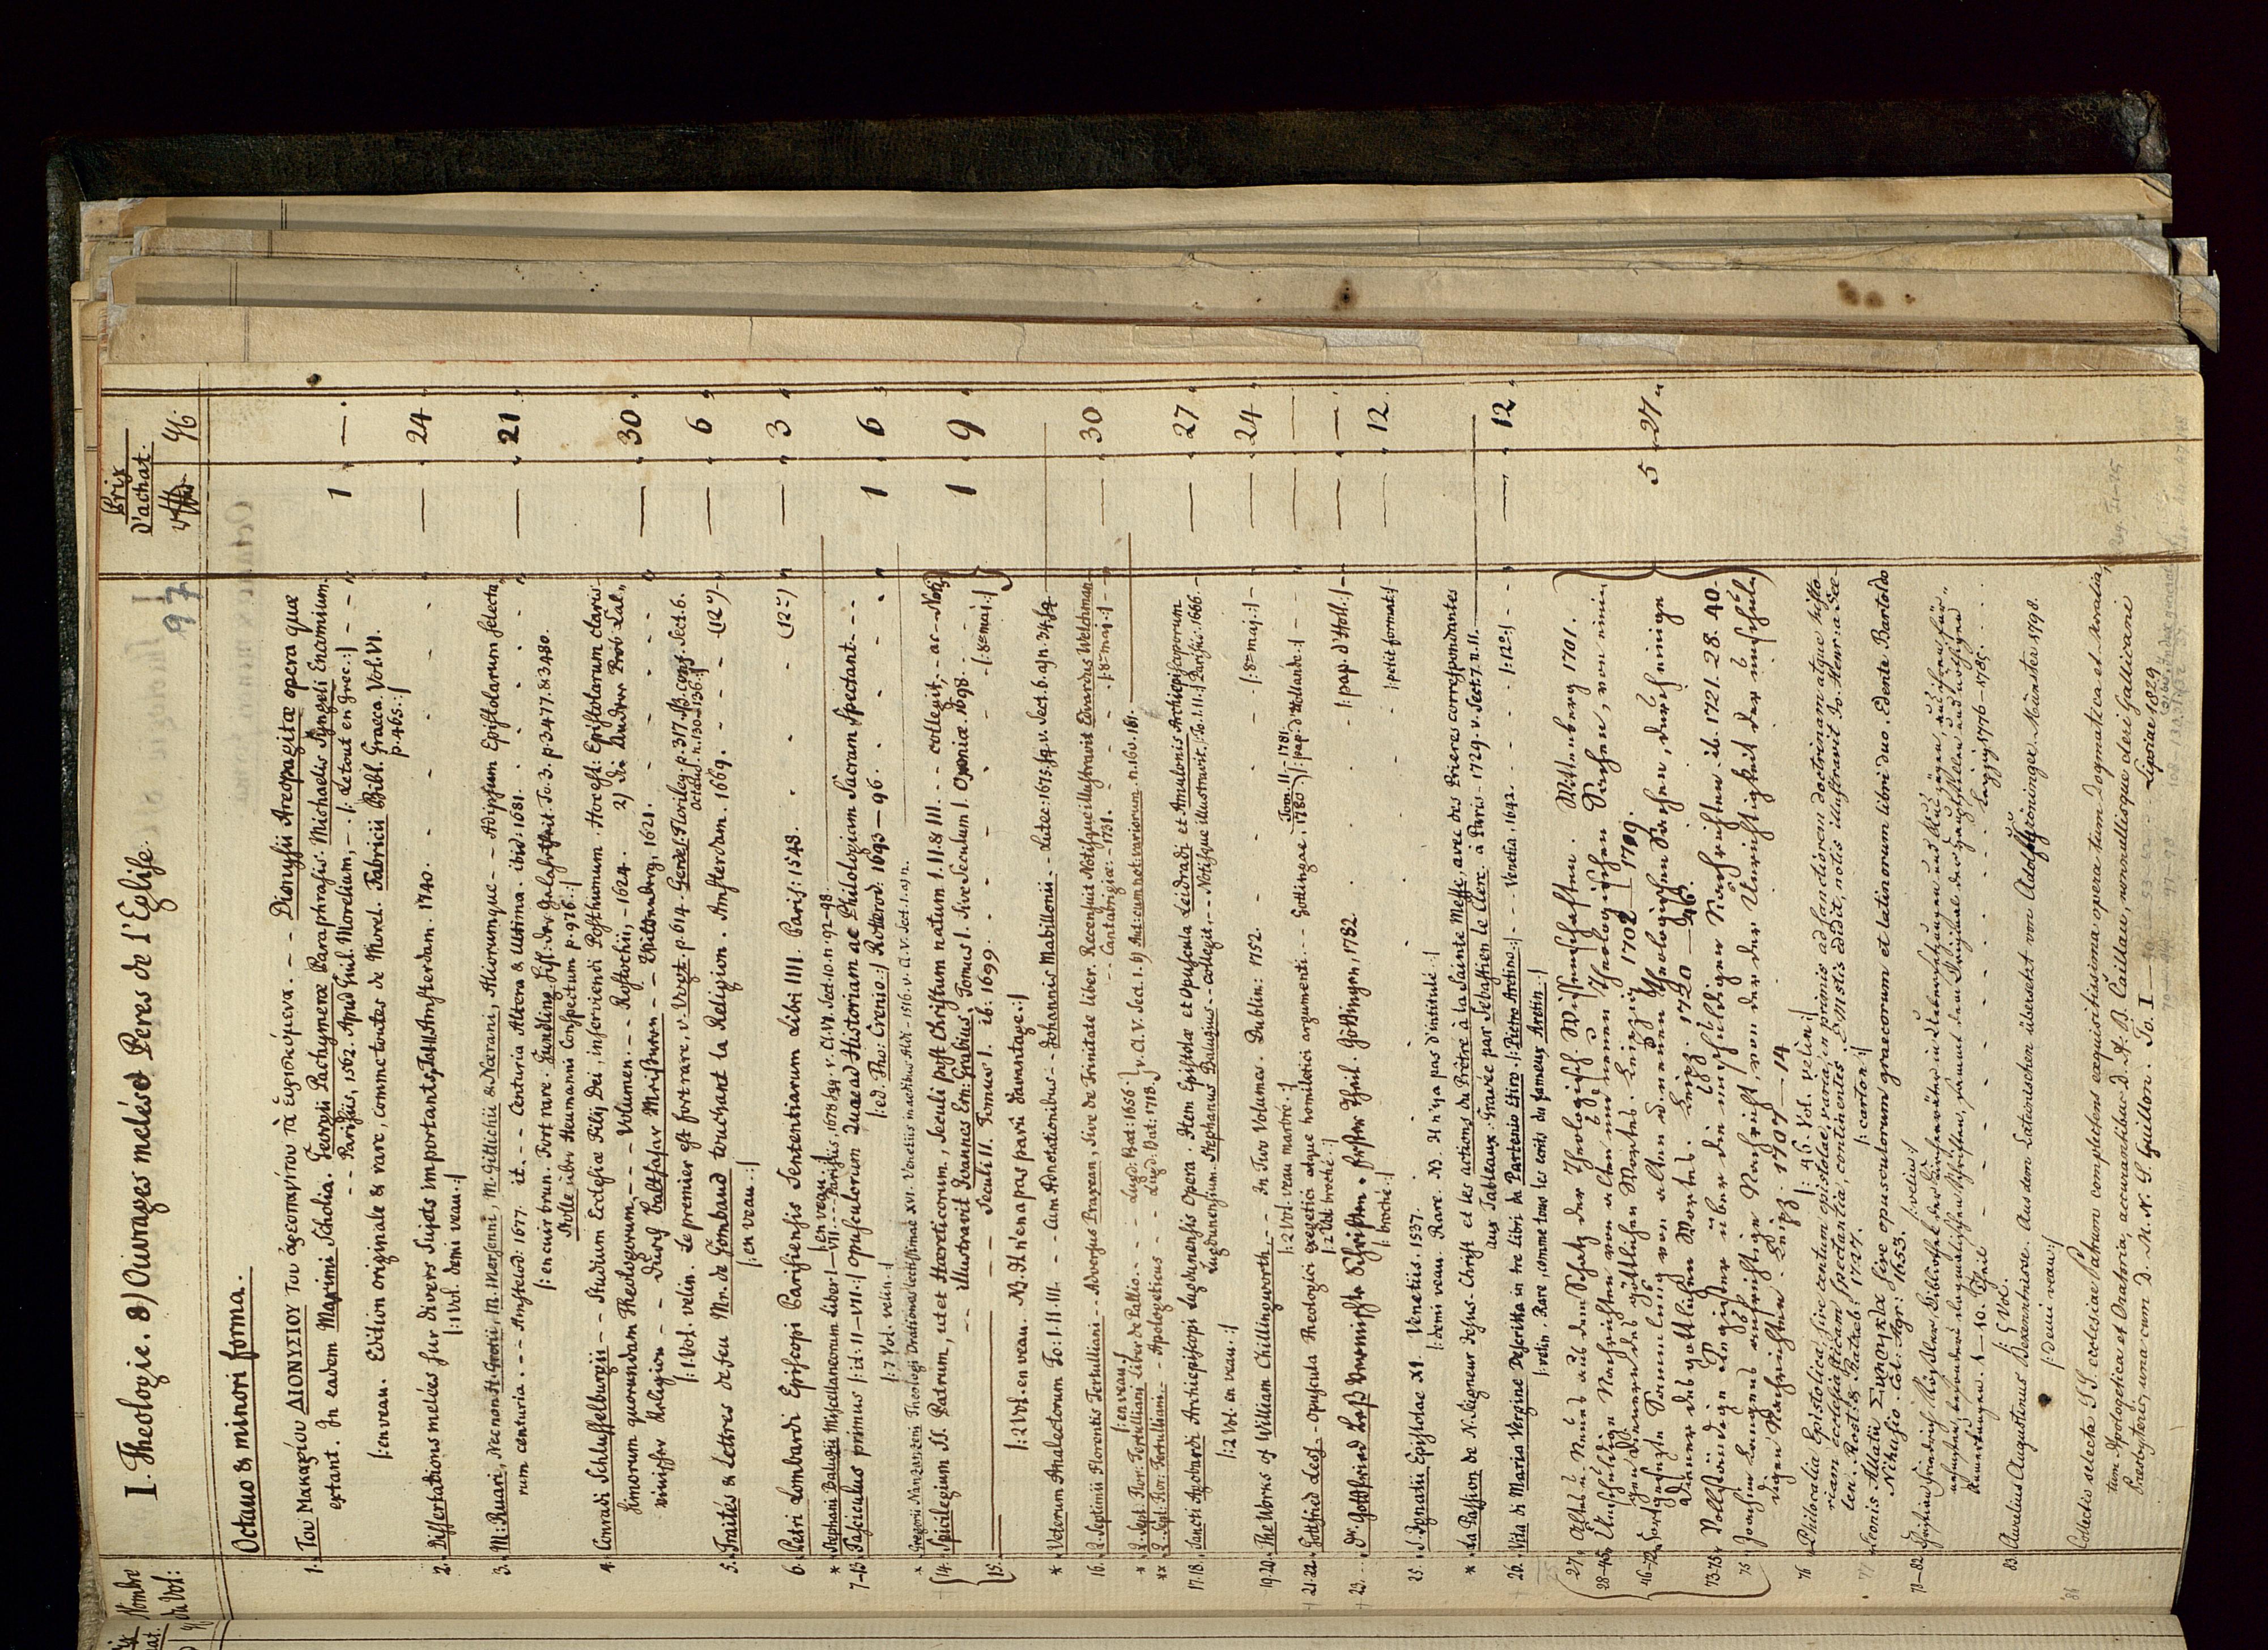 Nombre du Vol:
I. Theologie. 8) Ouvrages melés et Peres de l'Eglise.
97
Prix d'achat.
Octavo & minori forma.
1. Του Μακαρίου ΔΙΟΝΥΣΙΟΥ Του ἀρεοπαγίτου τὰ εὑρισκόμενα. - - Dionysii Areopagitæ opera quæ
extant. In eadem Maximi Scholia. Georgii Pachymeræ Paraphrasis. Michaelis Syngeli Encomium.
- - Parisiis, 1562. Apud Guil. Morelium, - /: Le tout en Grec :/ - - 1 —
/: en veau. Edition originale & rare, comme toutes de Morel. Fabricii Bibl. Graeca Vol. VI.
p. 465. :/
2. Dissertations melées sur divers Sujets importants, Amsterdam. 1740. — 24
/: 1 Vol. demi veau. :/
3. M: Ruari, nec non H. Grotii, M. Mersenni, M. Gittichii & Nærani, Aliorumque - - Ad ipsum Epistolarum selecta,
rum centuria. - - Amstelod: 1677. it. - - Centuria Altera & Ultima. ibid: 1681. — 21
/: en cuir brun. Fort rare. Gundling Hist. der Gelahrtheit. To. 3. p. 3477. & 3480.
Stolle über Heumanni Conspectum p. 976. :/
4. Conradi Schlusselburgii - - Studium Ecclesiæ Filij Dei, inserviendi Posthumum. Hoc est: Epistolarum claris-
simorum quorundam Theologorum - - - Volumen. - - Rostochii, - 1624. 2) Die Andere Prob Cal-
vinischer Religion - - Durch Baltasar Meisnern - - Wittenberg, 1621. — 30
/: 1 Vol. velin. Le premier est fort rare, v. Vogt. p. 614. Gerdes. Florileg: p. 317. conf. Sect. 6.
Octav. n. 130-136. :/
5. Traités & Lettres de feu Mr. de Gombaud touchant la Religion. Amsterdam. 1669. - - (12º) — 6
/: en veau. :/
6. Petri Lombardi Episcopi Parisiensis Sententiarum Libri IIII. Paris: 1548. (12º) — 3
/: en veau. :/
* Stephani Baluzii Miscellaneorum Liber I—VII. - - - Parisiis, 1678 sq. v. Cl. VI. Sect. 10. n. 92-98.
7-13. Fasciculus primus /: id: II—VII :/ Opusculorum Quæ ad Historiam ac Philologiam Sacram spectant - - -
/: ed. Tho: Crenio :/ Rotterod. 1693—96. 1 6
/: 7 Vol. velin. :/
* Gregorii Nazanzeni Theologi Orationes lectissimæ XVI. Venetiis in ædibus Aldi - 1516. v. Cl. V. Sect. 1. a) n.
14. Spicilegium SS. Patrum, ut et Hæreticorum, Seculi post Christum natum I. II. & III. - - - collegit, - ac - Notis
- - - illustravit Joannes Ern: Grabius, Tomus I. sive Seculum I. Oxoniæ. 1698. 1 9
15. — Seculi II. Tomus I. ib: 1699. /: 8º maj. :/
/: 2 Vol. en veau. NB. Il n'en a pas paru davantage. :/
* Veterum Analectorum To: I. II. III. - - - Cum Adnotationibus - Johannis Mabillonii. - - Lutec: 1675. sq. v. Sect. 6. a) n.
16. Q. Septimii Florentis Tertulliani - - Adversus Praxean, Sive de Trinitate liber. Recensuit Notisque illustravit Edvardus Welchman
/: en veau :/ - - Cantabrigiæ: - 1731. /: 8º maj. :/ — 30
* Q. Sept. Flor: Tertulliani Liber de Pallio. - - Lugd: Bat: 1656. v. Cl. V. Sect. 1. b) Aut: cum not: variorum. n. 160. 161.
** Q. Sept. Flor: Tertulliani - Apologeticus - - Lugd: Bat: 1718.
17.18. Sancti Agobardi Archiepiscopi Lugdunensis Opera. Item Epistolæ et Opuscula Leidradi et Amulonis Archiepiscoporum
Lugdunensium. Stephanus Baluzius - - collegit, - - Notisque illustravit. /: To: I. II. :/ Parisiis. 1666. — 27
/: 2 Vol. en veau. :/
19.20. The Works of William Chillingworth - - In Two Volumes. Dublin: 1752. /: 8º maj. :/ — 24
/: 2 Vol. veau marbré. :/
21.22. Gottfried Less - Opuscula Theologici exegetici atque homiletici argumenti. - - Gottingae, 1780. Tom. II - 1781. /: pap. d'Hollande. :/ — —
/: 2 Vol. broché. :/
23. Dr. Gottfried Leß Vermischte Schriften. Erster Theil. Göttingen, 1782. /: pap. d'Holl. :/ — —
/: broché. :/
25. S. Ignatii Epistolae XI. Venetiis. 1537. /: petit format :/ — 12
/: demi veau. Rare. NB. Il n'y a pas d'intitulé. :/
* La Passion de N. Seigneur Jesus-Christ et les actions du Prêtre à la Sainte Messe, avec des Prieres correspondantes
aux Tableaux. Gravée par Sebastien le Clerc. à Paris - 1729. v. Sect. 7. n. 11.
26. Vita di Maria Vergine Descritta in tre Libri da Partenio Etiro. /: Pietro Aretino :/ - - Venetia. 1642. - - /: 12º :/ — 12
/: velin. Rare, comme tous les ecrits du fameux Aretin. :/
27. Altes u. Neues aus dem Schatz der Theologisch. Wissenschaften. Wittenberg 1701.
28-45. Unschuldige Nachrichten von alten und neuen Theologischen Sachen, von einigen
Dienern des göttlichen Wortes. Leipzig 1702—1719.
46-72. Fortgesetzte Sammlung von alten und neuen Theologischen Sachen, durch einige
Diener des göttlichen Wortes. Leipz. 1720—46. 5 27
73-75. Vollständige Register über die unschuldigen Nachrichten. ib. 1721. 28. 40.
75. Joachim Langens aufrichtige Nachricht, von der Unrichtigkeit der unschuldigen
Nachrichten. Leipz. 1707—14.
/: 46. Vol. velin :/
76. Philocalia Epistolica, sive centum epistolae, varia, in primis ad sanctiorem doctrinam atque histo-
riam ecclesiasticam spectantia, continentes. E Mstis edidit, notis illustravit Jo. Henr: a See-
len. Rost: & Ratzeb: 1727. /: carton. :/
77. Leonis Allatii Σύμμικτα sive opusculorum graecorum et latinorum libri duo. Edente Bartoldo
Nihusio. Col: Agr: 1653. /: velin :/
78-82. Christian Friedrich Rößler Bibliothek der Kirchenväter in Uebersetzungen und Auszügen
Anmerkungen. 1—10. Theil - Leipzig 1776-1785.
/: 5 Vol.
83. Aurelius Augustinus Bekenntnisse. Aus dem Lateinischen übersetzt von Adolf Gröninger. Münster 1798.
/: demi veau :/
Collectio selecta SS. ecclesiae Patrum complectens exquisitissima opera tum dogmatica et moralia,
tum Apologetica et Oratoria; accurantibus D. A. B. Caillau, nonnullisque cleri Gallicani
presbyteris, una cum D. M. N. S. Guillon. To. I — Parisiis 1829